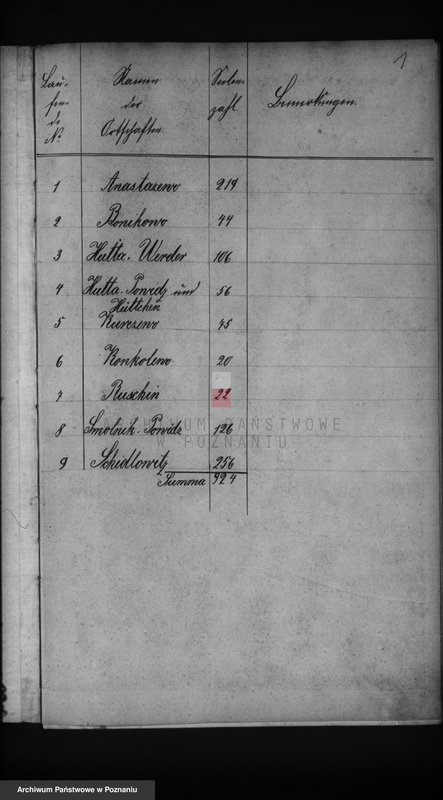 1
Lau-
fen-
de
No.
Namen
der
Ortschaften.
Seelen-
zahl
Bemerkungen.
1 Anastazewo 219
2 Bonikowo 44
3 Hutta-Werder 106
4 Hutta-Powidz und 56
Hüttchen
5 Kurczewo 75
6 Konkolewo 20
7 Ruschin 22
8 Smolnik-Powidz 126
9 Schidlowitz 256
Summa 924
ARCHIWUM PAŃSTWOWE
W POZNANIU
Archiwum Państwowe w Poznaniu